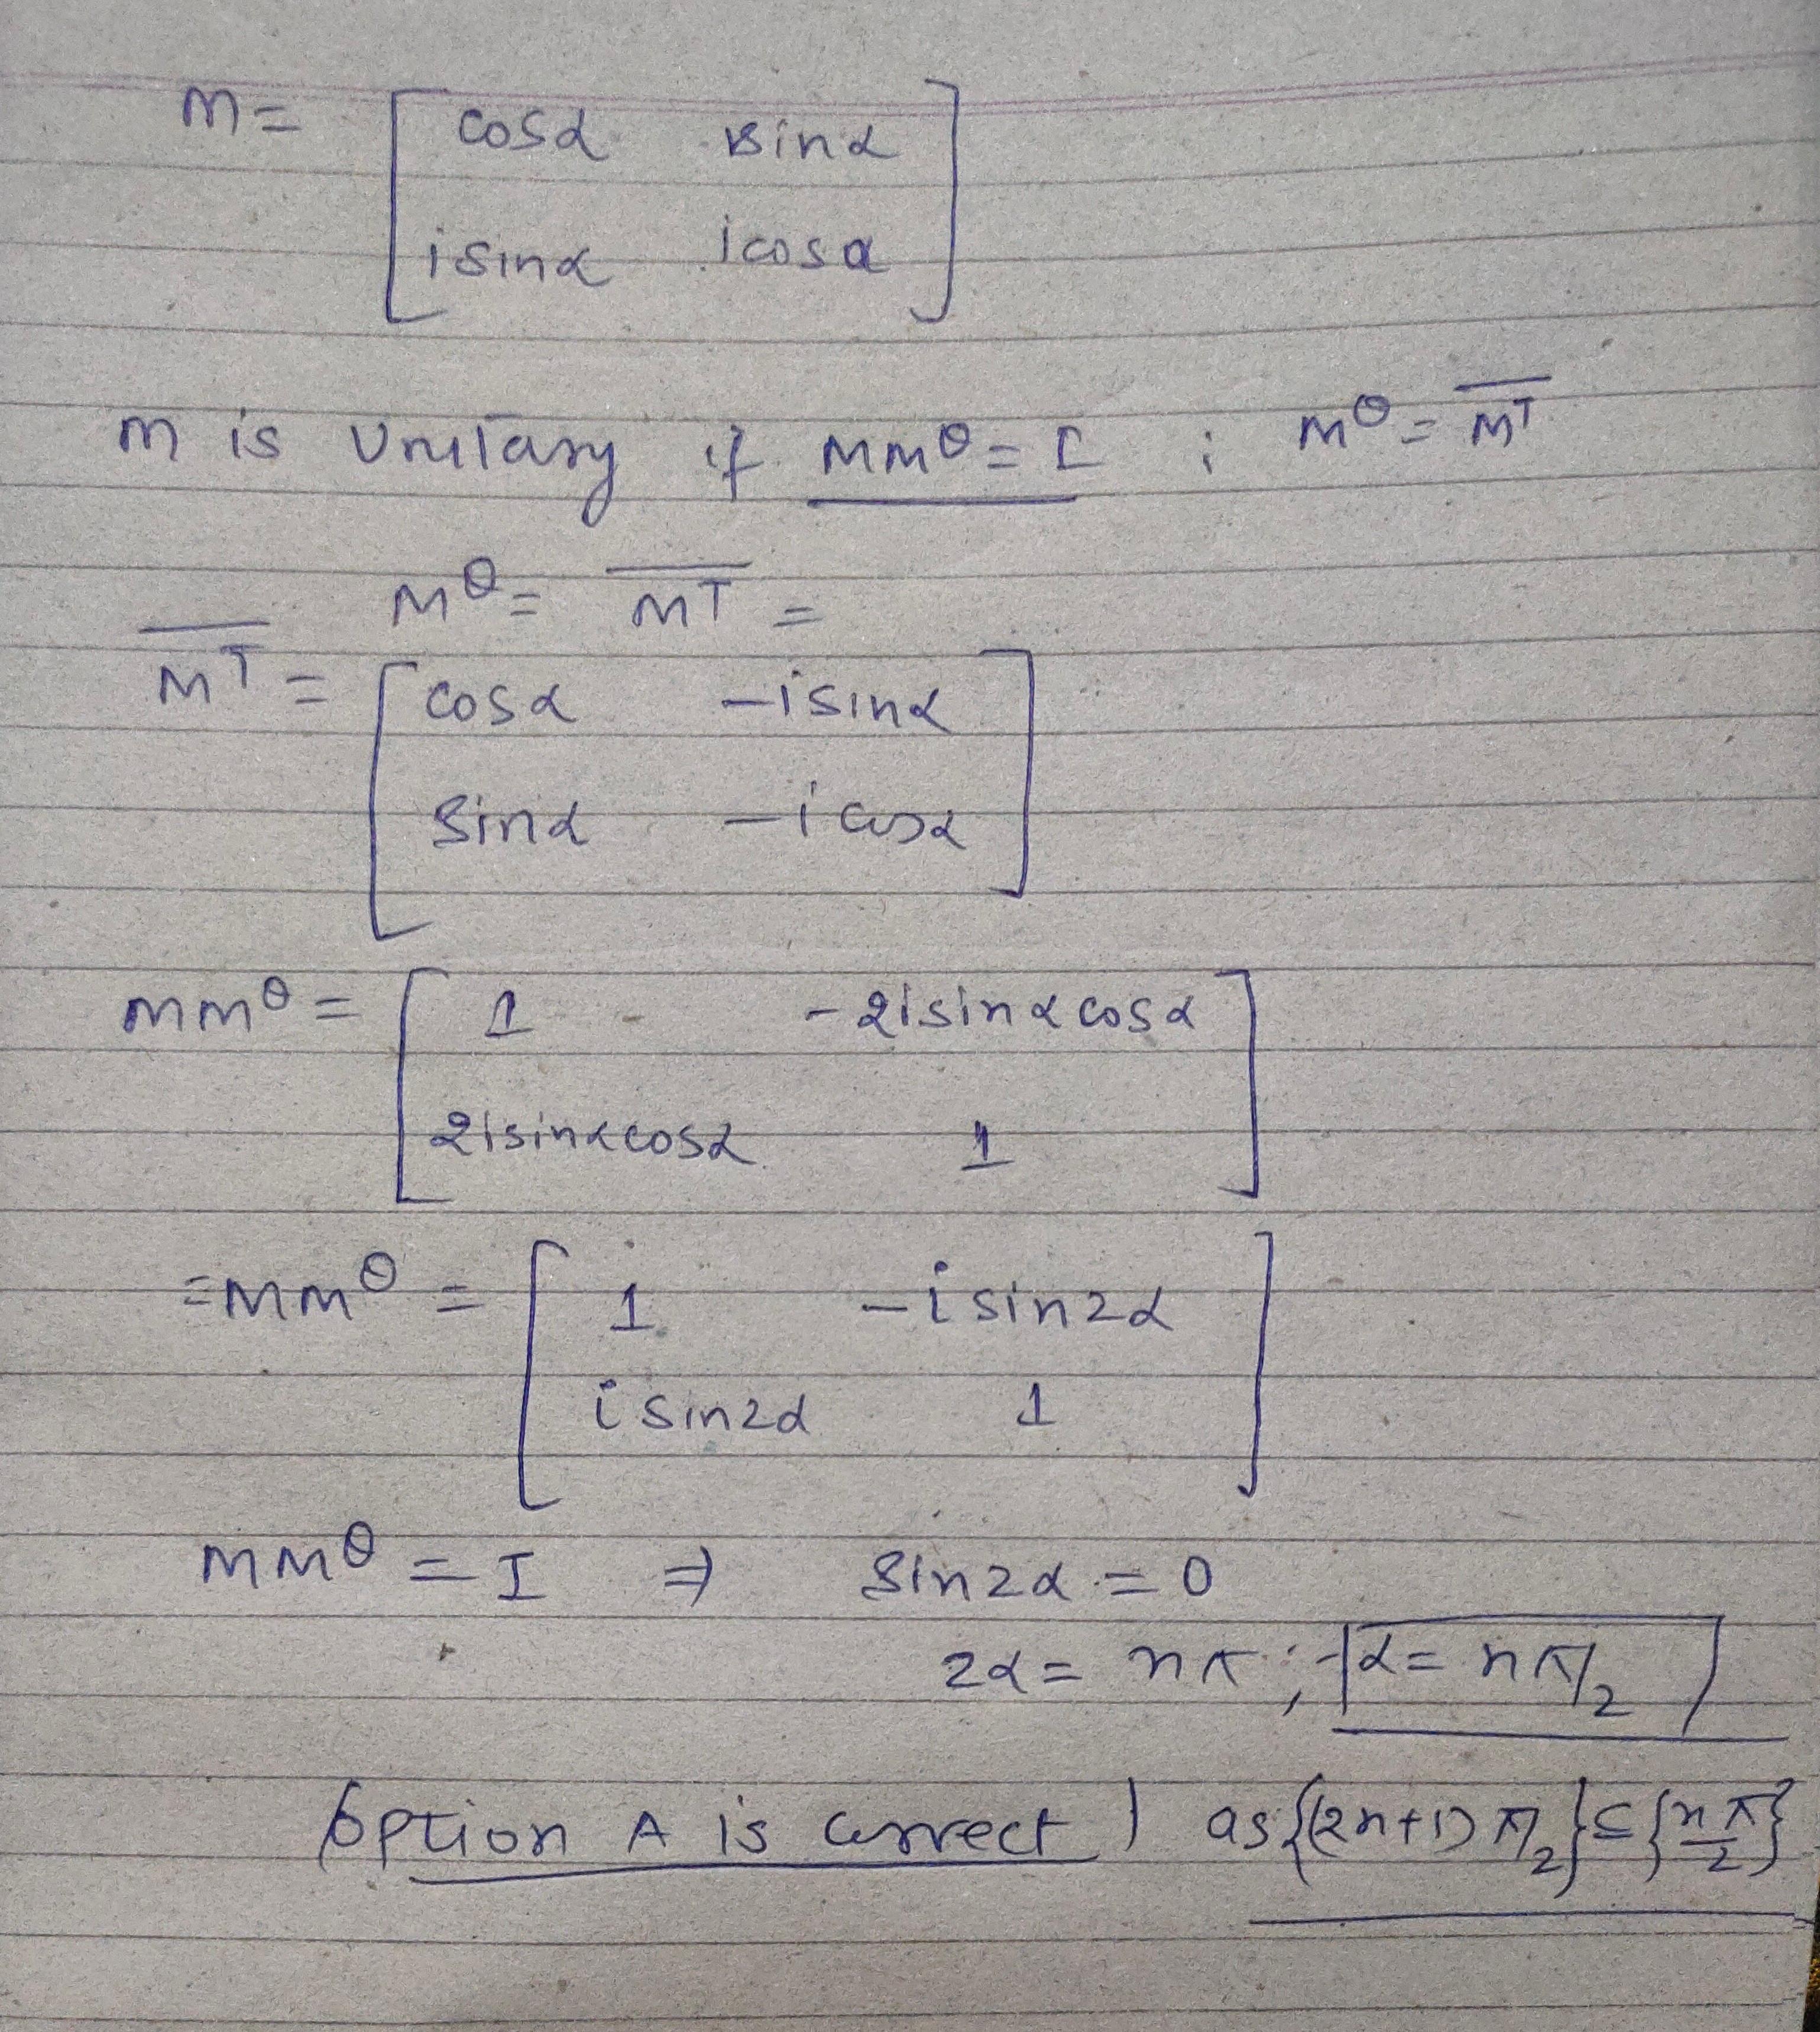 m = [ cosα sinα
isinα icosα ]
m is Unitary if MM^θ = I ; M^θ = \overline{M^T}
M^θ = \overline{M^T} =
\overline{M^T} = [ cosα -isinα
sinα -icosα ]
MM^θ = [ 1 -2isinαcosα
2isinαcosα 1 ]
= MM^θ = [ 1 -isin2α
isin2α 1 ]
MM^θ = I ⇒ sin2α = 0
2α = nπ ; α = nπ/2
option A is correct ) as {(2n+1)π/2} ⊆ {nπ/2}